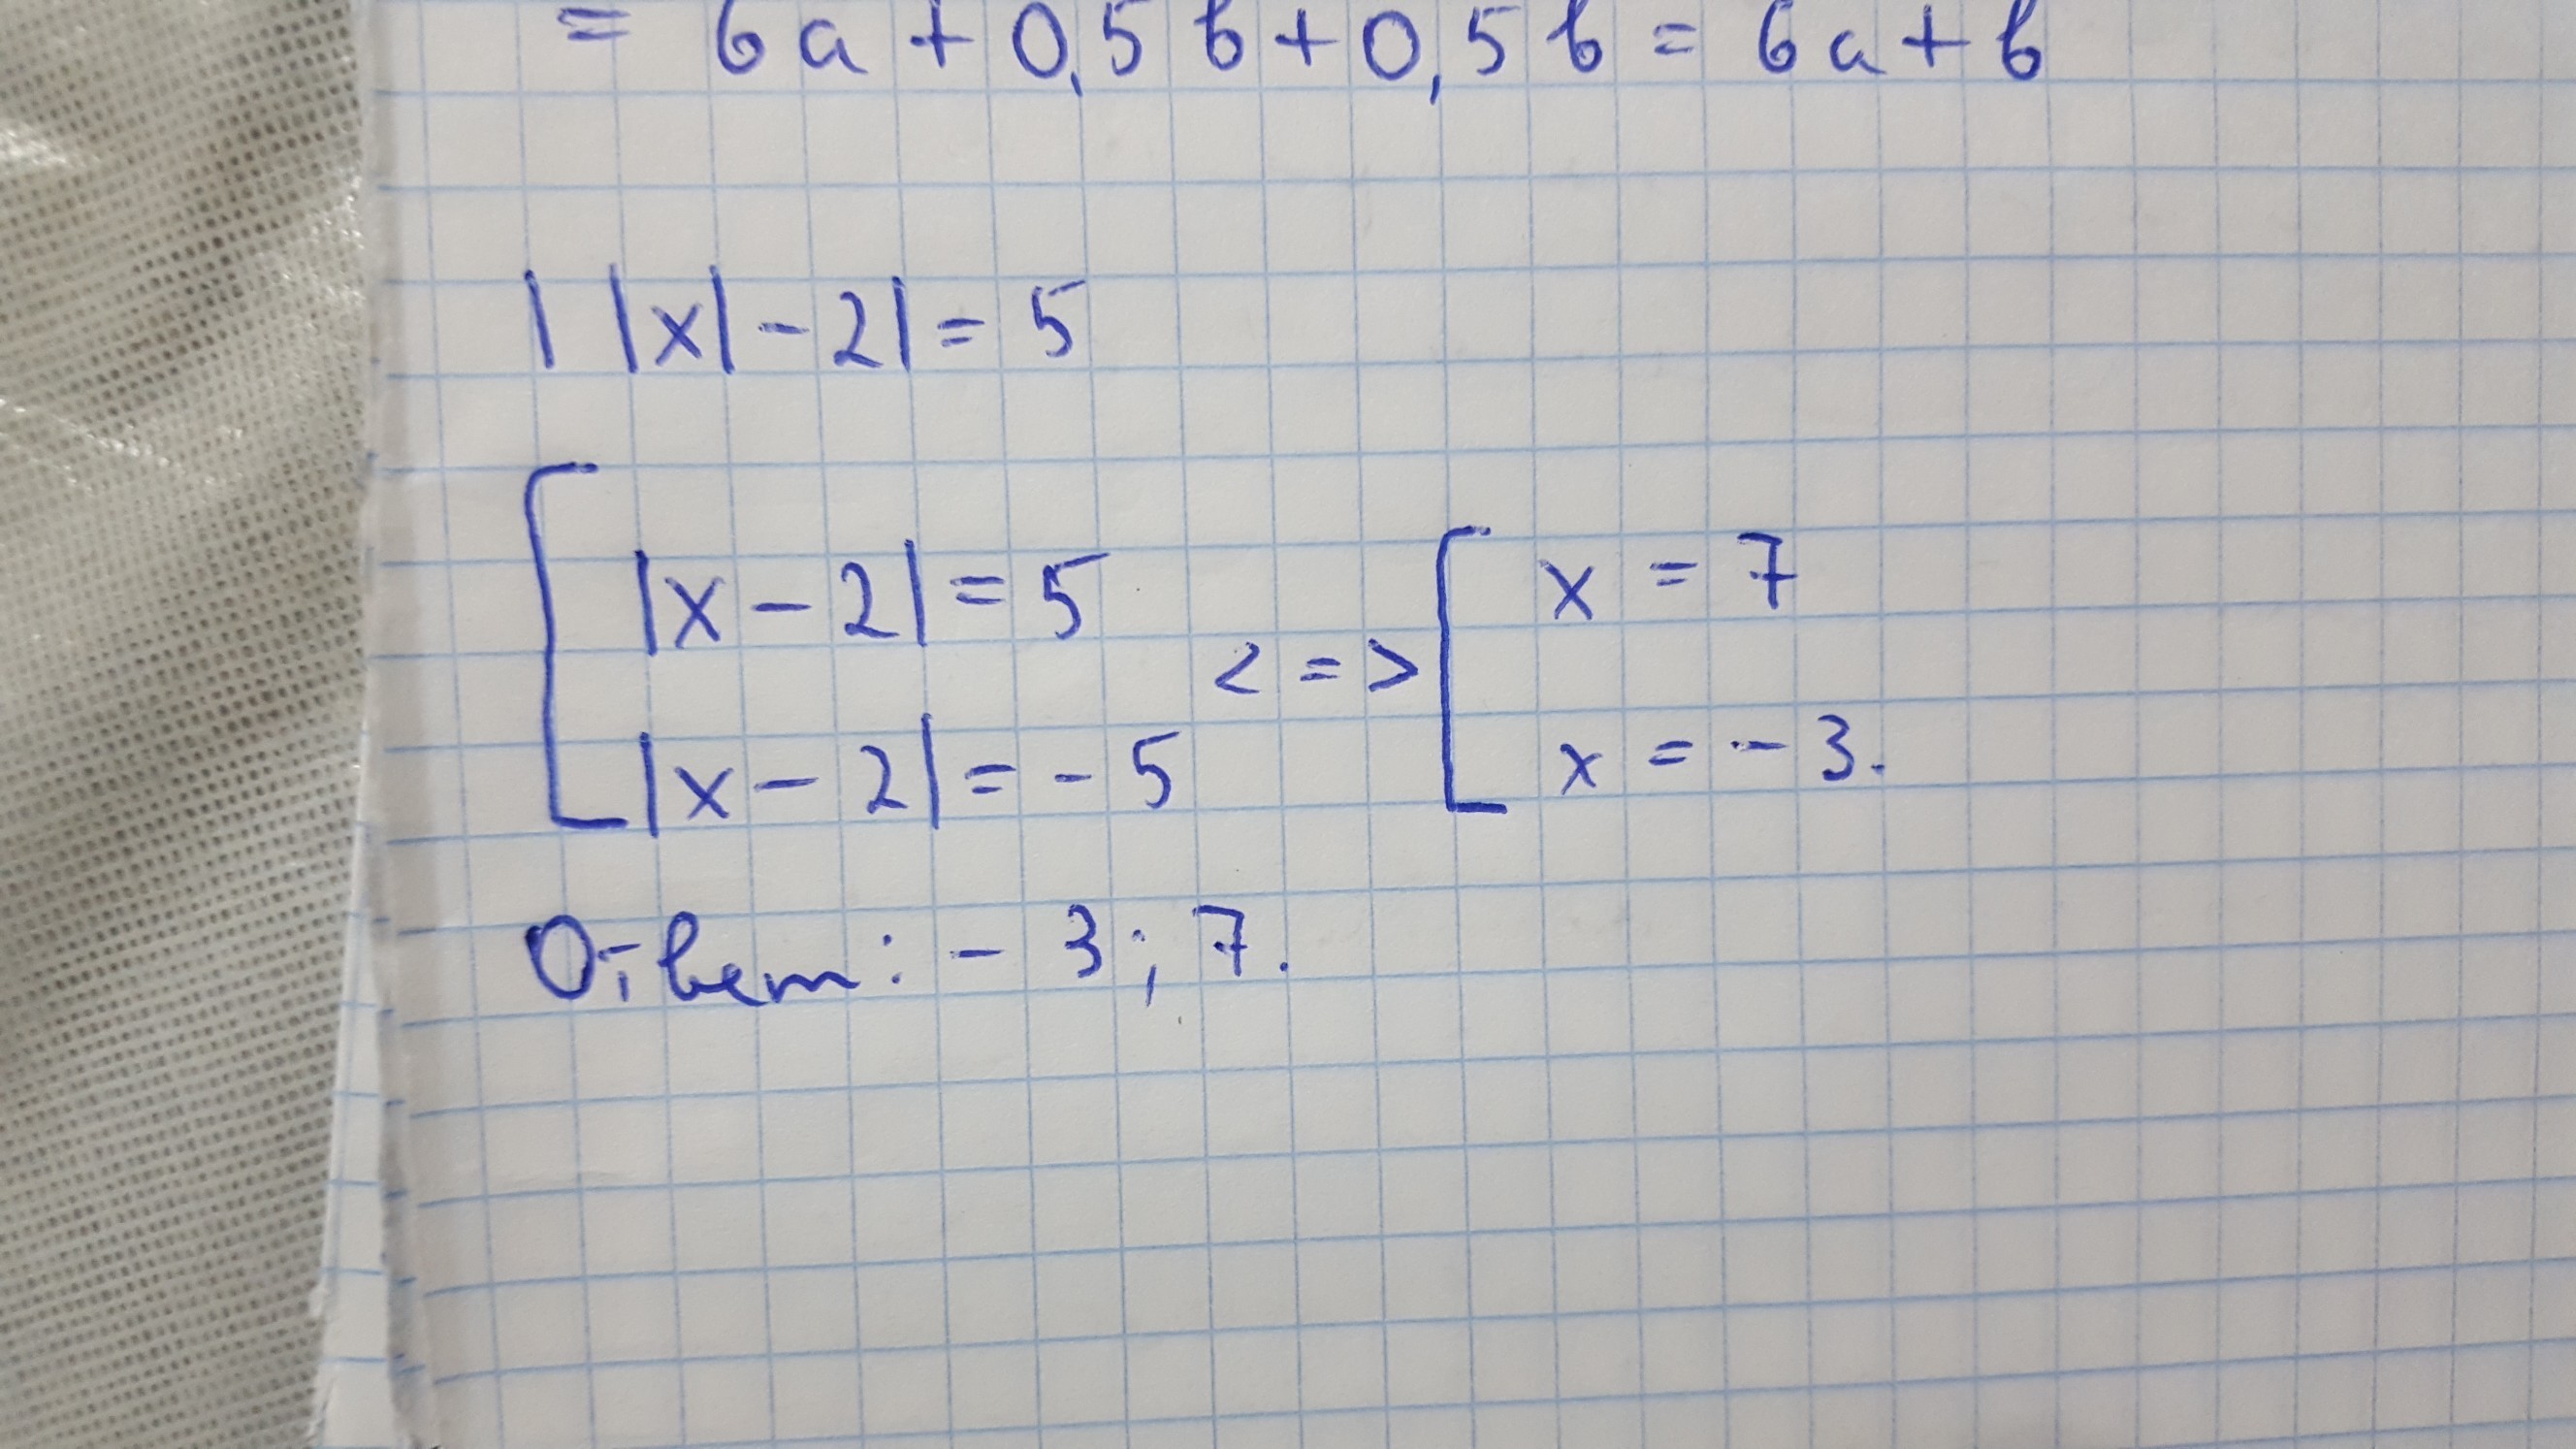 = 6a + 0,5b + 0,5b = 6a + b
||x| - 2| = 5
[ |x - 2| = 5
<=> [ x = 7
|x - 2| = - 5
x = - 3.
Ответ: - 3; 7.